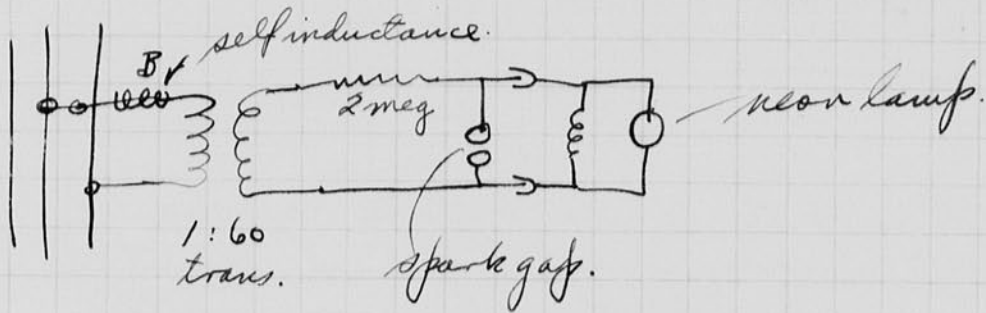 self inductance.
B
2 meg
neon lamp.
1:60
trans.
spark gap.